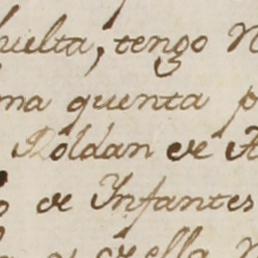 vuelta, tengo
ma quenta p
Roldan de A
de Infantes
y de ella